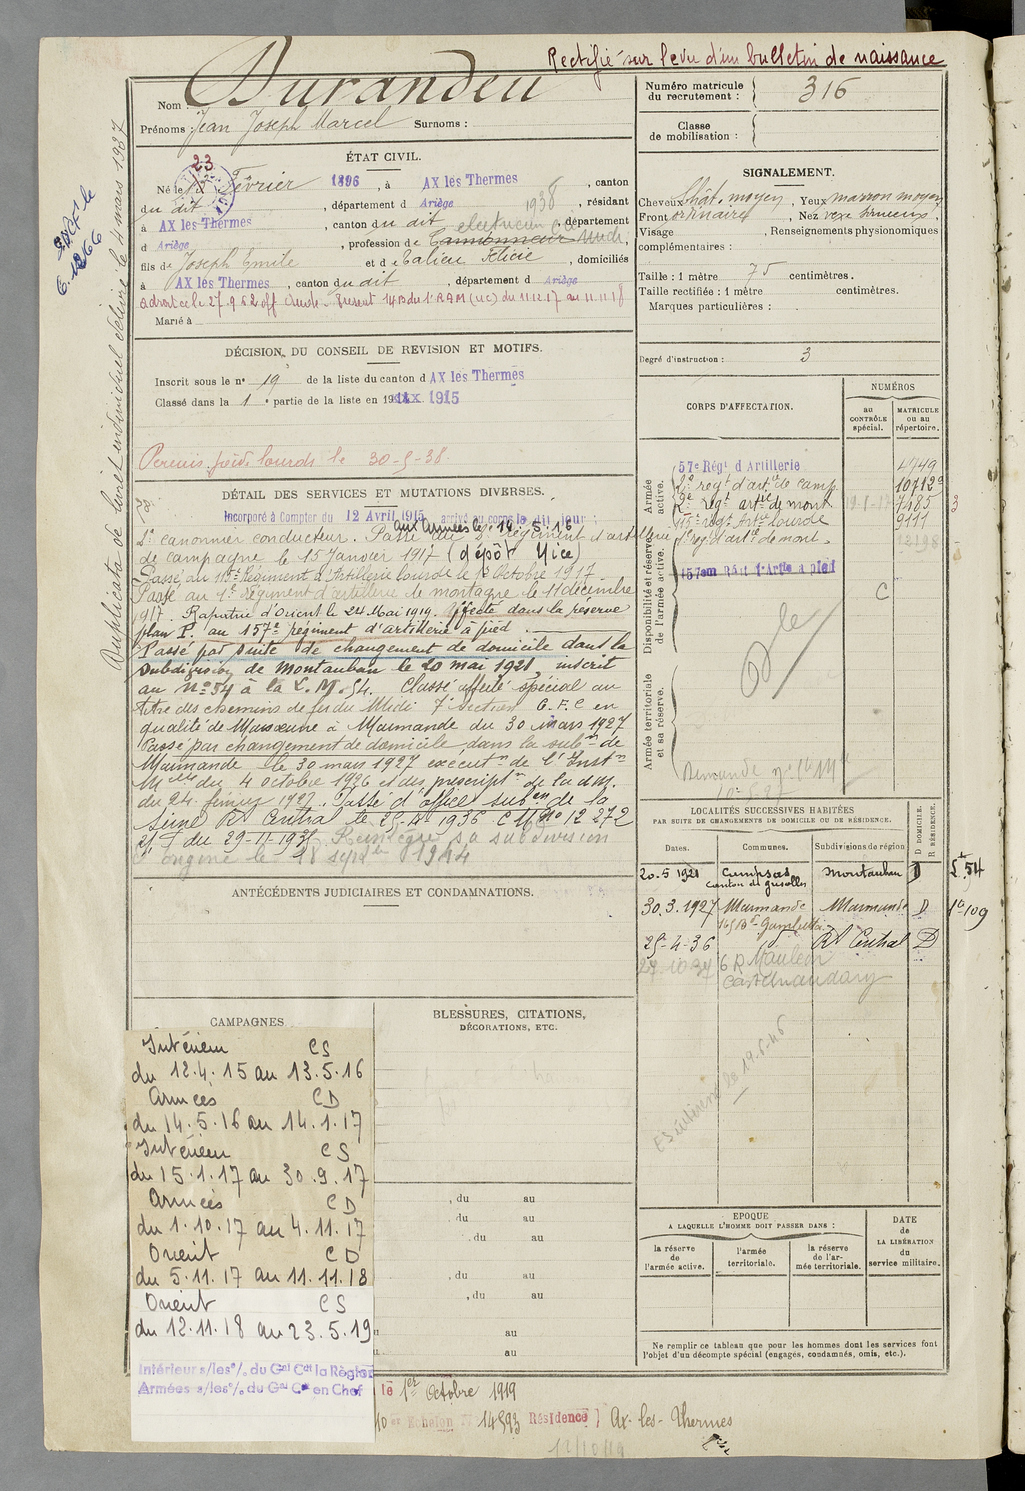 Rectifié sur le vu d'un bulletin de naissance
Nom : Durandeu
Prénoms : Jean Joseph Marcel Surnoms :
Numéro matricule du recrutement : 316
Classe de mobilisation :
Duplicata de livret individuel délivré le 4 mars 1937
ÉTAT CIVIL.
Né le 23 Février 1896, à AX les Thermes, canton
du dit, département d Ariège, 1938 résidant
à AX les Thermes, canton du dit, département
d Ariège, profession de électricien
fils de Joseph Emile et de Félicie, domiciliés
à AX les Thermes, canton du dit, département d Ariège
Marié à
SIGNALEMENT.
Cheveux Chât. moyen, Yeux marron moyen
Front ordinaire, Nez
Visage , Renseignements physionomiques
complémentaires :
Taille : 1 mètre 75 centimètres.
Taille rectifiée : 1 mètre centimètres.
Marques particulières :
Degré d'instruction : 3
DÉCISION DU CONSEIL DE REVISION ET MOTIFS.
Inscrit sous le n° 19 de la liste du canton d AX les Thermes
Classé dans la 1e partie de la liste en 1915
Permis poids lourds le 30-5-38
DÉTAIL DES SERVICES ET MUTATIONS DIVERSES.
Incorporé à Compter du 12 Avril 1915 arrivé au corps le dit jour :
aux Armées le 14.5.16
2e canonnier conducteur. Passé au 2e Régiment d'artillerie
de campagne le 15 Janvier 1917 (dépôt Nice)
Passé au 115e Régiment d'Artillerie lourde le 1er Octobre 1917
Passé au 1er Régiment d'artillerie de montagne le 11 décembre
1917. Rapatrié d'Orient le 24 Mai 1919. Affecté dans la réserve
plan P. au 157e régiment d'artillerie à pied.
Passé par suite de changement de domicile dans la
subdivision de Montauban le 20 mai 1921, inscrit
au N° 54 à la L.M. 54. Classé affecté spécial au
titre des chemins de fer du Midi 7e Section C.F.C en
qualité de Manoeuvre à Marmande du 30 mars 1927
Passé par changement de domicile dans la subon de
Marmande le 30 mars 1927 exécutn de l'Instn
Mlle du 4 octobre 1926 et des prescriptn de la d.m.
du 24 février 1927. Passé d'office subon de la
Seine Rt Central le 25-4-1936
du 29-11-1935 Réintégré sa subdivision
d'origine le 18 septbre 1944
CORPS D'AFFECTATION.
NUMÉROS
au CONTRÔLE spécial.
MATRICULE ou au répertoire.
Armée active.
57e Régt d'Artillerie 4749
2e régt d'artie de camp. 10712
2e régt artie de mont. 7485
115e régt Artie lourde 9111
1er rég. d'art. de mont. 12198
Disponibilité et réserve de l'armée active.
157em Régt d'Artie à pied
C
Armée territoriale et sa réserve.
LOCALITÉS SUCCESSIVES HABITÉES
PAR SUITE DE CHANGEMENTS DE DOMICILE OU DE RÉSIDENCE.
Dates. Communes. Subdivisions de région D DOMICILE. R RÉSIDENCE.
20.5.1921 Campsas canton de grisolles Montauban D L 54
30.3.1927 Marmande Marmande D 109
165 Bd Gambetta
25-4-36 Rt Central D
27-10-37 6 R Mauléon
Castelnaudary
ANTÉCÉDENTS JUDICIAIRES ET CONDAMNATIONS.
CAMPAGNES
Intérieur CS
du 12.4.15 au 13.5.16
Armées CD
du 14.5.16 au 14.1.17
Intérieur CS
du 15.1.17 au 30.9.17
Armées CD
du 1.10.17 au 4.11.17
Orient CD
du 5.11.17 au 11.11.18
Orient CS
du 12.11.18 au 23.5.19
Intérieur s/les o/. du Gal Ct la Région
Armées s/les o/. du Gal Ct en Chef
BLESSURES, CITATIONS,
DÉCORATIONS, ETC.
, du au
, du au
, du au
, du au
, du au
au
au
EPOQUE
A LAQUELLE L'HOMME DOIT PASSER DANS :
la réserve de l'armée active.
l'armée territoriale.
la réserve de l'armée territoriale.
DATE de LA LIBÉRATION du service militaire.
Ne remplir ce tableau que pour les hommes dont les services font
l'objet d'un décompte spécial (engagés, condamnés, omis, etc.).
le 1er Octobre 1919
Echelon 14593 Résidence } Ax-les-Thermes